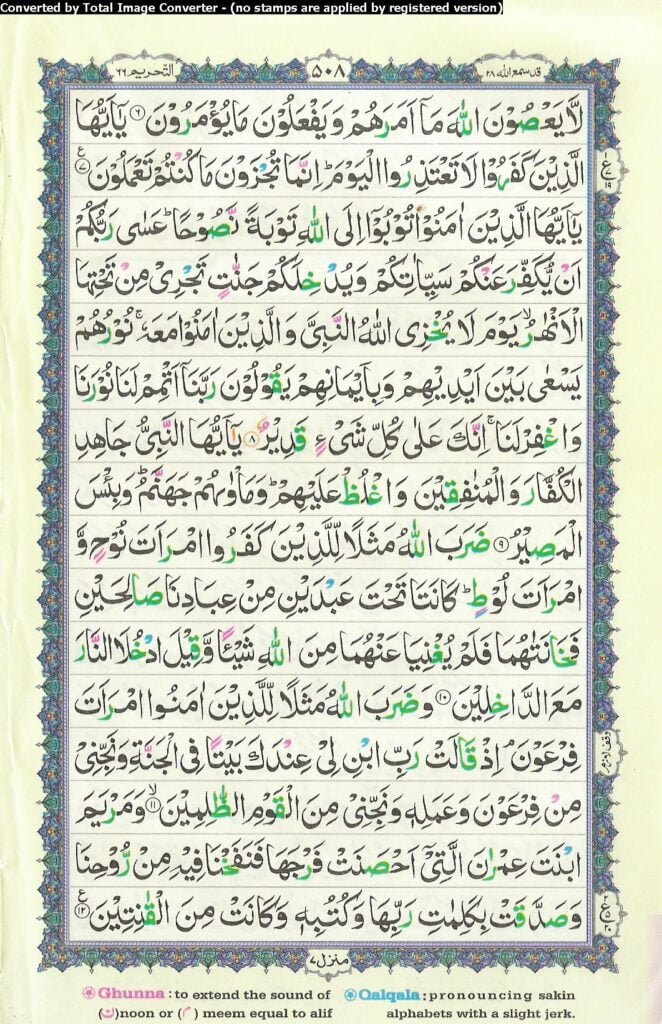 Converted by Total Image Converter - (no stamps are applied by registered version)
قد سمع الله ٢٨
٥٠٨
التحريم ٦٦
لَّا يَعْصُوْنَ اللّٰهَ مَاۤ اَمَرَهُمْ وَيَفْعَلُوْنَ مَا يُؤْمَرُوْنَ ۝۶ يٰۤاَيُّهَا
الَّذِيْنَ كَفَرُوْا لَا تَعْتَذِرُوا الْيَوْمَ ؕ اِنَّمَا تُجْزَوْنَ مَا كُنْتُمْ تَعْمَلُوْنَ ۝۷
يٰۤاَيُّهَا الَّذِيْنَ اٰمَنُوْا تُوْبُوْۤا اِلَى اللّٰهِ تَوْبَةً نَّصُوْحًا ؕ عَسٰى رَبُّكُمْ
اَنْ يُّكَفِّرَ عَنْكُمْ سَيِّاٰتِكُمْ وَيُدْخِلَكُمْ جَنّٰتٍ تَجْرِيْ مِنْ تَحْتِهَا
الْاَنْهٰرُ ۙ يَوْمَ لَا يُخْزِى اللّٰهُ النَّبِيَّ وَالَّذِيْنَ اٰمَنُوْا مَعَهٗ ۚ نُوْرُهُمْ
يَسْعٰى بَيْنَ اَيْدِيْهِمْ وَبِاَيْمَانِهِمْ يَقُوْلُوْنَ رَبَّنَاۤ اَتْمِمْ لَنَا نُوْرَنَا
وَاغْفِرْ لَنَا ۚ اِنَّكَ عَلٰى كُلِّ شَيْءٍ قَدِيْرٌ ۝۸ يٰۤاَيُّهَا النَّبِيُّ جَاهِدِ
الْكُفَّارَ وَالْمُنٰفِقِيْنَ وَاغْلُظْ عَلَيْهِمْ ؕ وَمَاْوٰىهُمْ جَهَنَّمُ ؕ وَبِئْسَ
الْمَصِيْرُ ۝۹ ضَرَبَ اللّٰهُ مَثَلًا لِّلَّذِيْنَ كَفَرُوا امْرَاَتَ نُوْحٍ وَّ
امْرَاَتَ لُوْطٍ ؕ كَانَتَا تَحْتَ عَبْدَيْنِ مِنْ عِبَادِنَا صَالِحَيْنِ
فَخَانَتٰهُمَا فَلَمْ يُغْنِيَا عَنْهُمَا مِنَ اللّٰهِ شَيْـًٔا وَّقِيْلَ ادْخُلَا النَّارَ
مَعَ الدّٰخِلِيْنَ ۝۱۰ وَضَرَبَ اللّٰهُ مَثَلًا لِّلَّذِيْنَ اٰمَنُوا امْرَاَتَ
فِرْعَوْنَ ۘ اِذْ قَالَتْ رَبِّ ابْنِ لِيْ عِنْدَكَ بَيْتًا فِى الْجَنَّةِ وَنَجِّنِيْ
مِنْ فِرْعَوْنَ وَعَمَلِهٖ وَنَجِّنِيْ مِنَ الْقَوْمِ الظّٰلِمِيْنَ ۙ۝۱۱ وَمَرْيَمَ
ابْنَتَ عِمْرٰنَ الَّتِيْۤ اَحْصَنَتْ فَرْجَهَا فَنَفَخْنَا فِيْهِ مِنْ رُّوْحِنَا
وَصَدَّقَتْ بِكَلِمٰتِ رَبِّهَا وَكُتُبِهٖ وَكَانَتْ مِنَ الْقٰنِتِيْنَ ۝۱۲
وقف لازم
منزل ٧
Ghunna : to extend the sound of
(ن) noon or (م) meem equal to alif
Qalqala : pronouncing sakin
alphabets with a slight jerk.